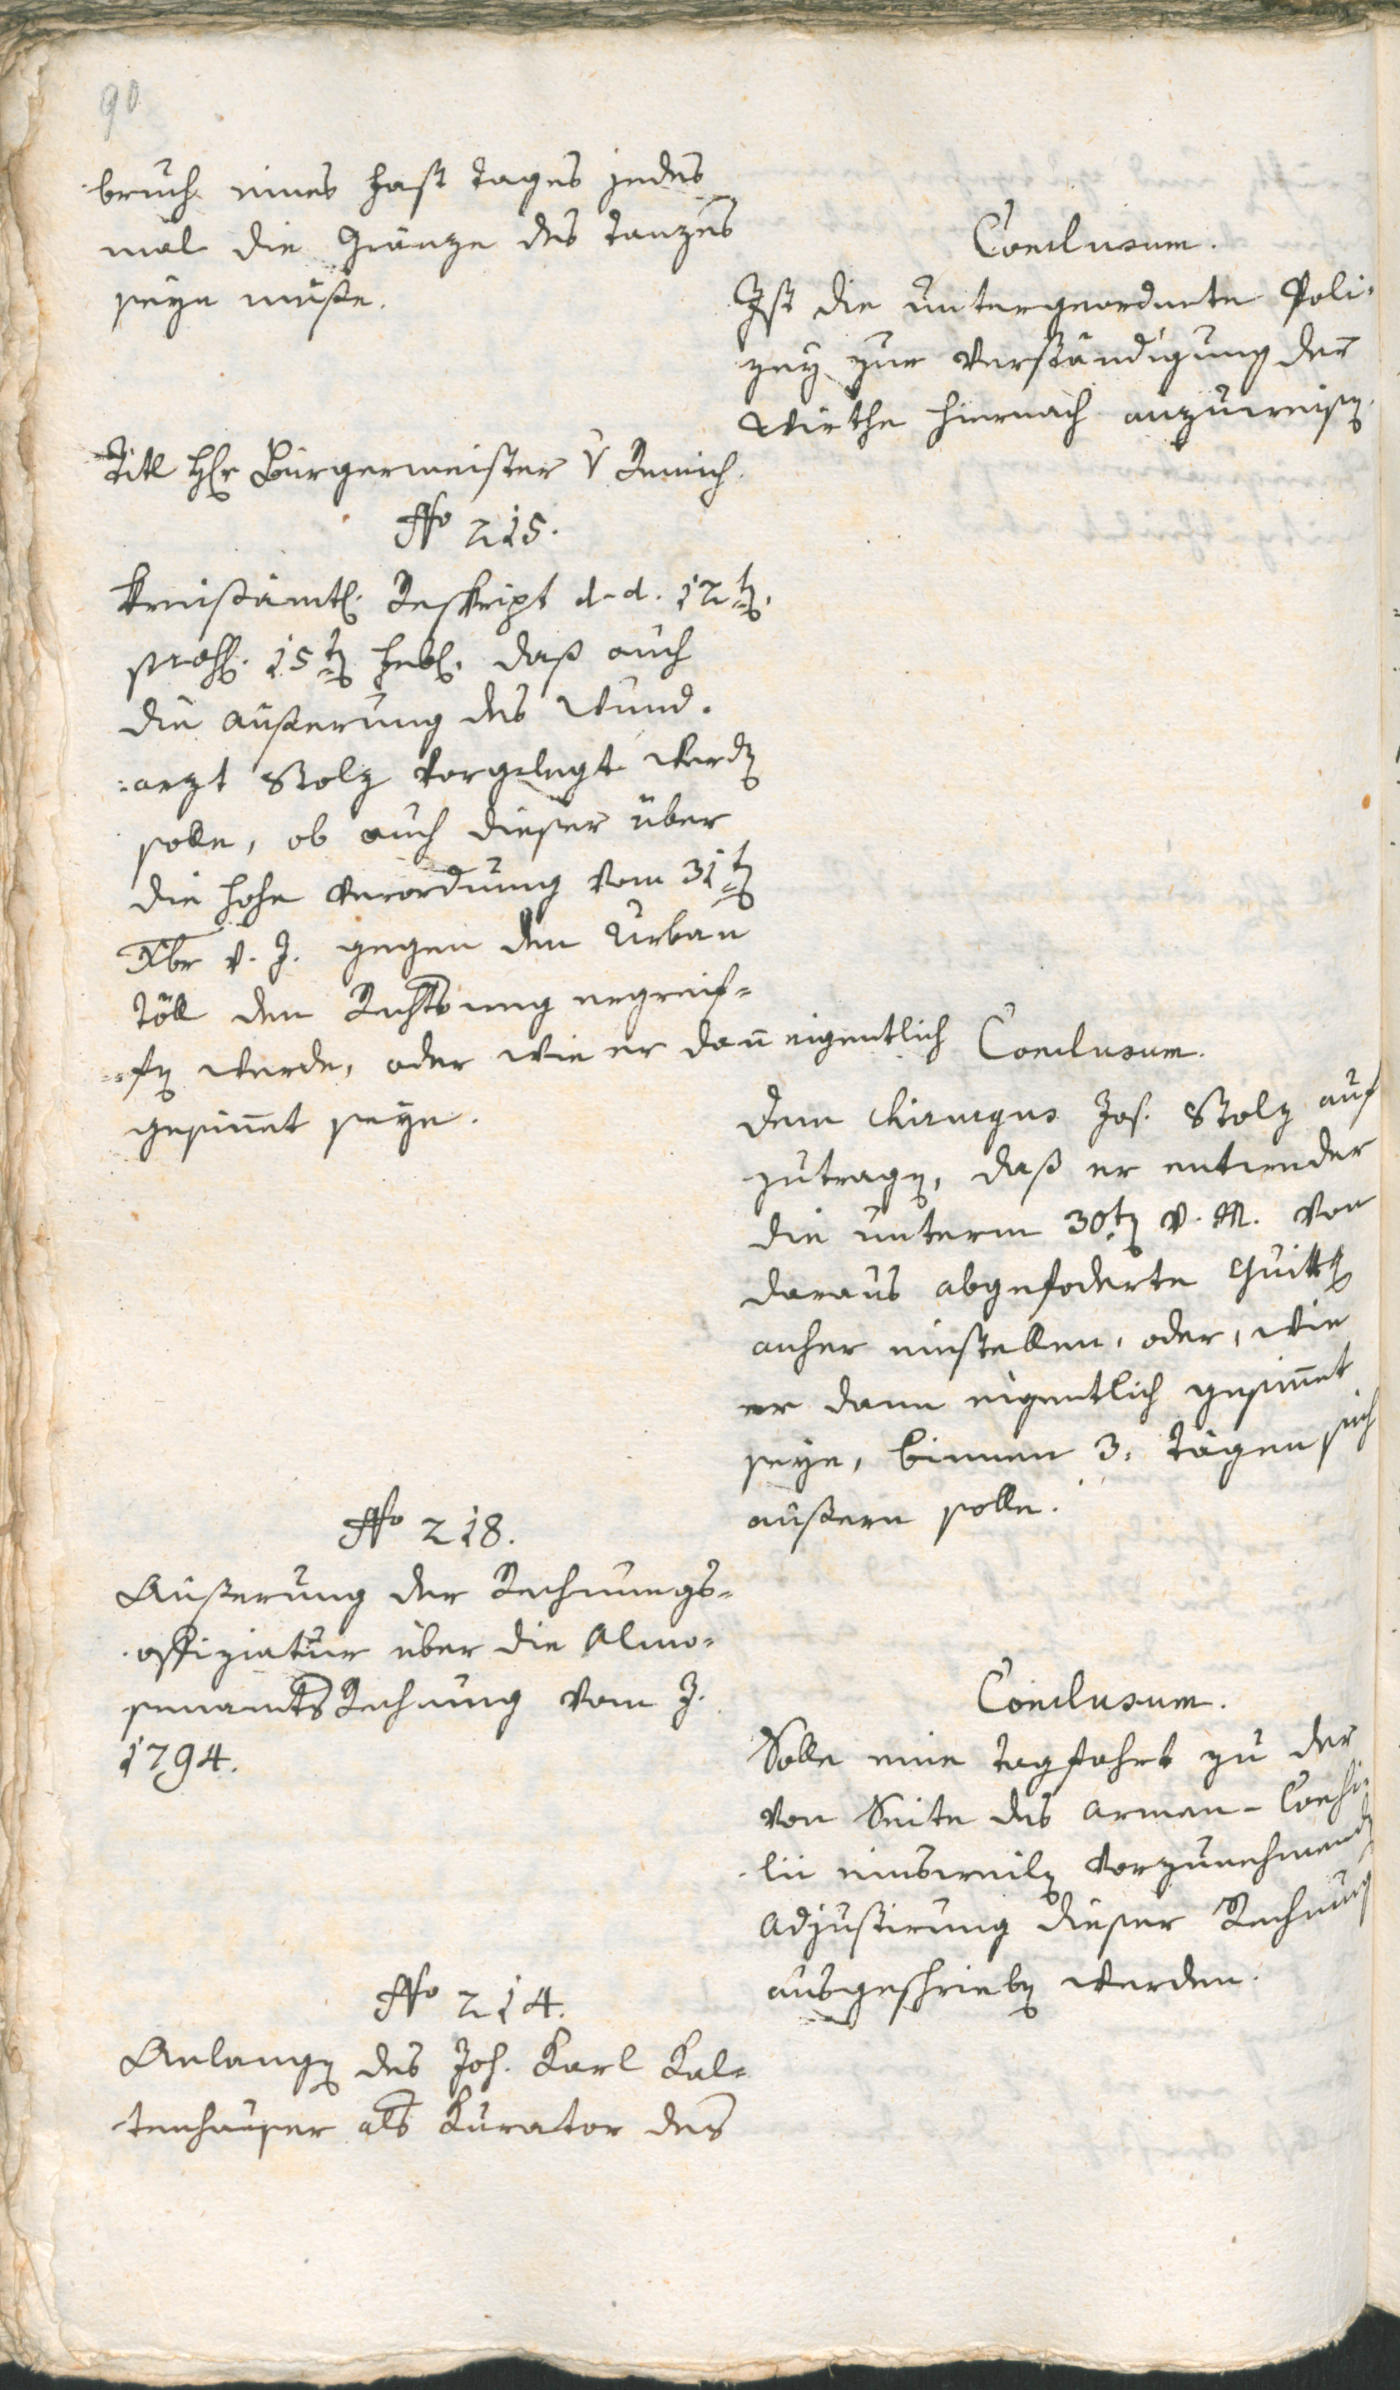 90
bruch eines Fast tages jedes
mal die Gränze des tanzes
seye müße.
Conclusum.
Ist die untergeordnete Poli-
zey zur Verständigung der
Wirthe hiernach anzuweisen.
Titl Hr Bürgermeister v Remich.
No 215.
Kreisämtl. Reskript d. d. 12ten
praes. 15ten Febr. daß auch
die äußerung des Wund-
arzt Stolz vorgelegt werden
solle, ob auch dieser über
die hohe Verordnung vom 31ten
Xbr v. J. gegen den Urban
Töll den Rechtsweg ergreif-
fen werde, oder wie er dann eigentlich
gesinnet seye.
Conclusum.
Dem Chirurgus Jos. Stolz auf
zutragen, daß er entweder
die unterm 30ten v. M. von
daraus abgefoderte Quittung
anher einstellen, oder, wie
er dann eigentlich gesinnet
seye, binnen 3. Tägen sich
äußern solle.
No 218.
Äußerung der Rechnungs-
offiziatur über die Almo-
senamts Rechnung vom J.
1794.
Conclusum.
Solle eine Tagfahrt zu der
von Seite des Armen-Consi-
lii einsweilen vorzunehmenden
Adjustirung dieser Rechnung
ausgeschrieben werden.
No 214.
Anlangen des Joh. Karl Kal-
tenhauser als Kurator des